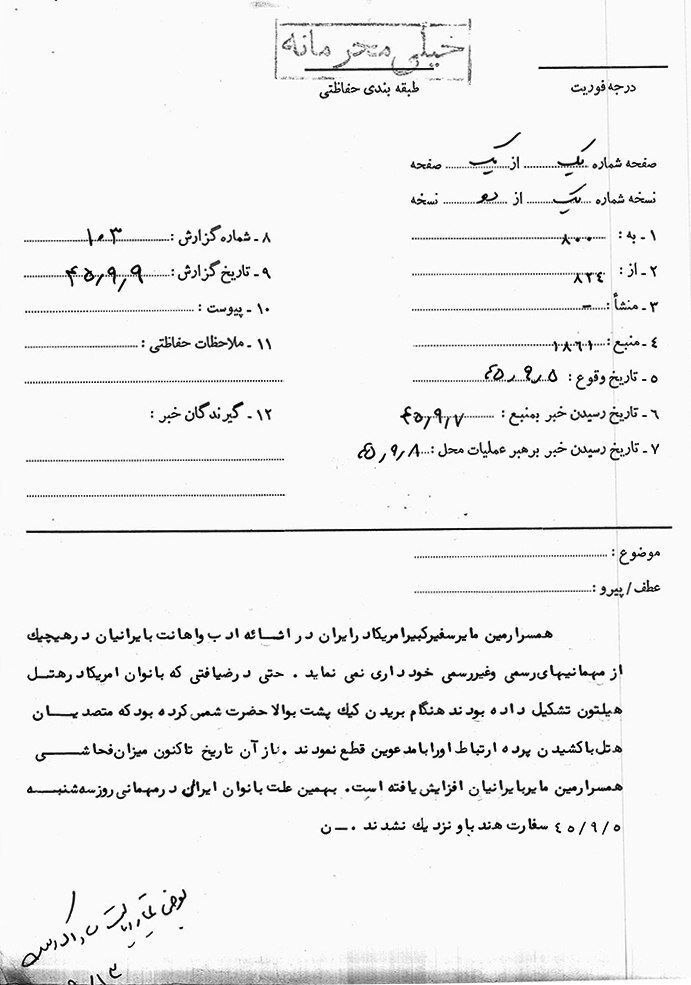 خیلی محرمانه
طبقه بندی حفاظتی
درجه فوریت
صفحه شماره یک از یک صفحه
نسخه شماره یک از دو نسخه
۱ ـ به : ۸۰۰
۲ ـ از : ۸۲٤
۳ ـ منشأ : -
٤ ـ منبع : ۱۸٦۱
٥ ـ تاریخ وقوع : ٤٥٫۹٫٥
٦ ـ تاریخ رسیدن خبر بمنبع : ٤٥٫۹٫۷
۷ ـ تاریخ رسیدن خبر برهبر عملیات محل : ٤٥٫۹٫۸
۸ ـ شماره گزارش : ۱۰۳
۹ ـ تاریخ گزارش : ٤٥٫۹٫۹
۱۰ ـ پیوست :
۱۱ ـ ملاحظات حفاظتی :
۱۲ ـ گیرندگان خبر :
موضوع :
عطف / پیرو :
همسر ارمین مایر سفیر کبیر امریکا در ایران در اشائه ادب و اهانت بایرانیان در هیچیک
از مهمانیهای رسمی وغیررسمی خود داری نمی نماید . حتی در ضیافتی که بانوان امریکا در هتل
هیلتون تشکیل داده بودند هنگام بریدن کیک پشت بوالا حضرت شمس کرده بود که متصدیان
هتل باکشیدن پرده ارتباط اورا بامدعوین قطع نمودند . از آن تاریخ تاکنون میزان فحاشی
همسر ارمین مایر بایرانیان افزایش یافته است. بهمین علت بانوان ایرانی در مهمانی روز سه شنبه
٤٥/۹/٥ سفارت هند باو نزدیک نشدند . ـ ن